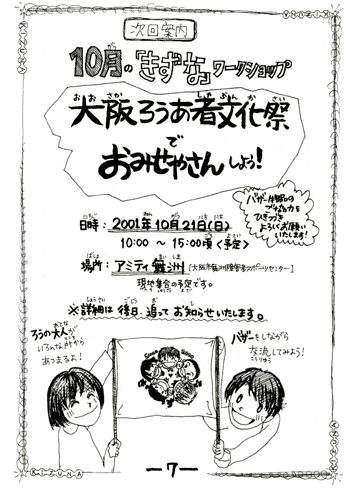 次回案内
10月の『きずな』ワークショップ
おおさか しゃぶんかさい
大阪ろうあ者文化祭
で
おみせやさんしよう！
バザー
ご協力を
ひきつづき
よろしくお願い
いたします！
日時：2001年10月21日(日)
10:00 ～ 15:00頃〈予定〉
場所：アミティ舞洲［大阪市舞洲障害者スポーツセンター］
現地集合の予定です。
※詳細は後日、追ってお知らせいたします。
ろうの大人が
いろんな所から
あつまるよ！
バザーをしながら
交流してみよう！
KIZUNA
KIZUNA
KIZUNA
KIZUNA
—7—